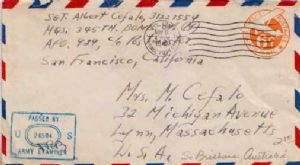 SGT. Albert Cefalo, 31227554
HQS. 345TH. BOMB
A.P.O. 929, c/o
San Francisco, California
Mrs. M. Cefalo
32 Michigan Avenue
Lynn, Massachusetts
U.S.A.
PASSED BY
U S
ARMY EXAMINER
6¢